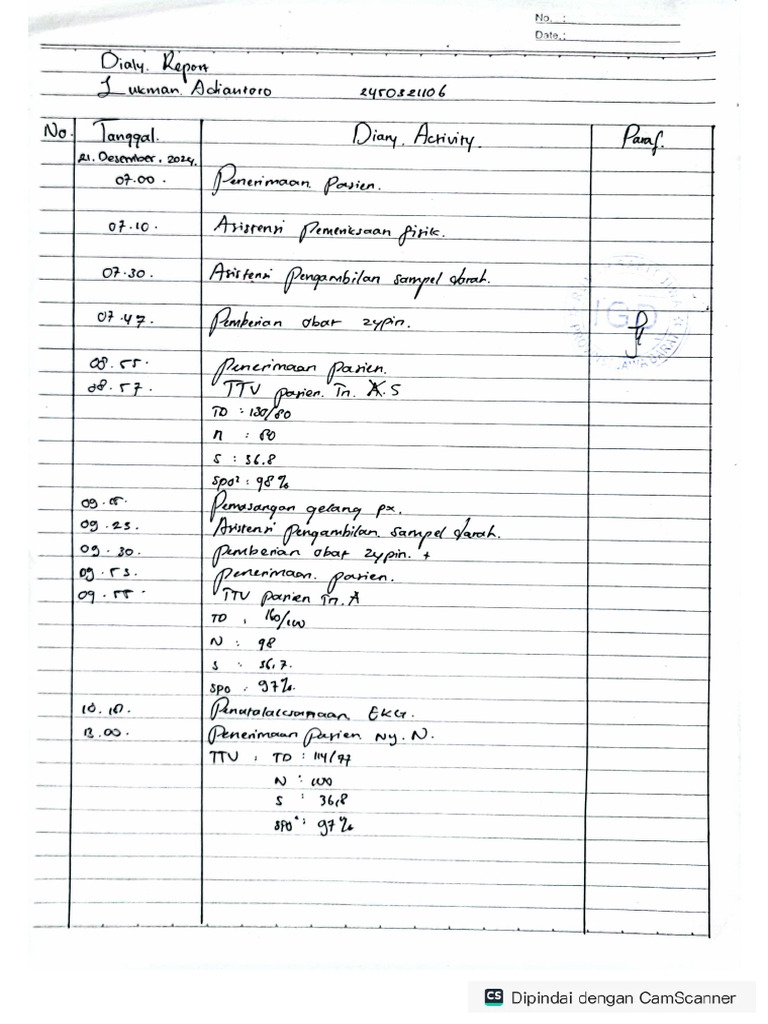 No. :
Date.:
Dialy. Report
Lukman. Adiantoro 2450321106
No. Tanggal. Diary. Activity. Paraf.
21. Desember. 2024.
07.00. Penerimaan Pasien.
07.10. Asistensi Pemeriksaan fisik.
07.30. Asistensi Pengambilan sampel darah.
07.47. Pemberian obat zypin.
IGD
08.55. Penerimaan pasien.
08.57. TTV pasien. Tn. A.S
TD : 130/80
n : 80
S : 36.8
SpO² : 98%
09.15. Pemasangan gelang px.
09.23. Asistensi Pengambilan sampel darah.
09.30. Pemberian obat zypin. +
09.53. Penerimaan. pasien.
09.55. TTV pasien Tn. A
TD . 160/100
N : 98
S : 36,7.
SPO : 97%.
10.10. Penatalaksanaan EKG.
13.00. Penerimaan Pasien Ny. N.
TTV , TD : 114/77
N : 100
S : 36,8
SPO² : 97%
CS Dipindai dengan CamScanner